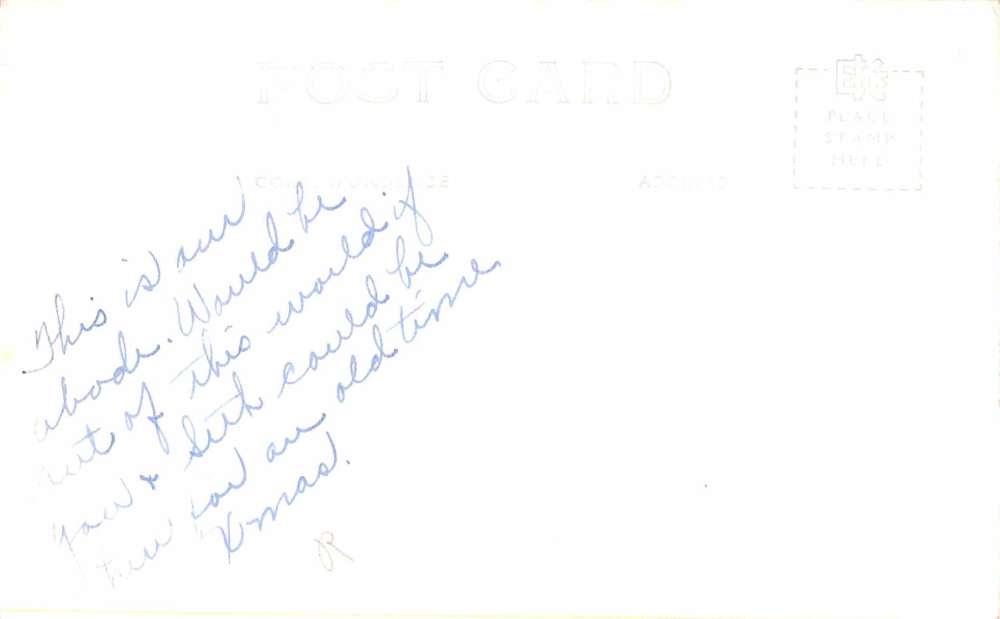 POST CARD
EKC
PLACE
STAMP
HERE
CORRESPONDENCE ADDRESS
This is our
abode. Would be
out of this world if
you & Seth could be
here for an old time
Xmas.
R